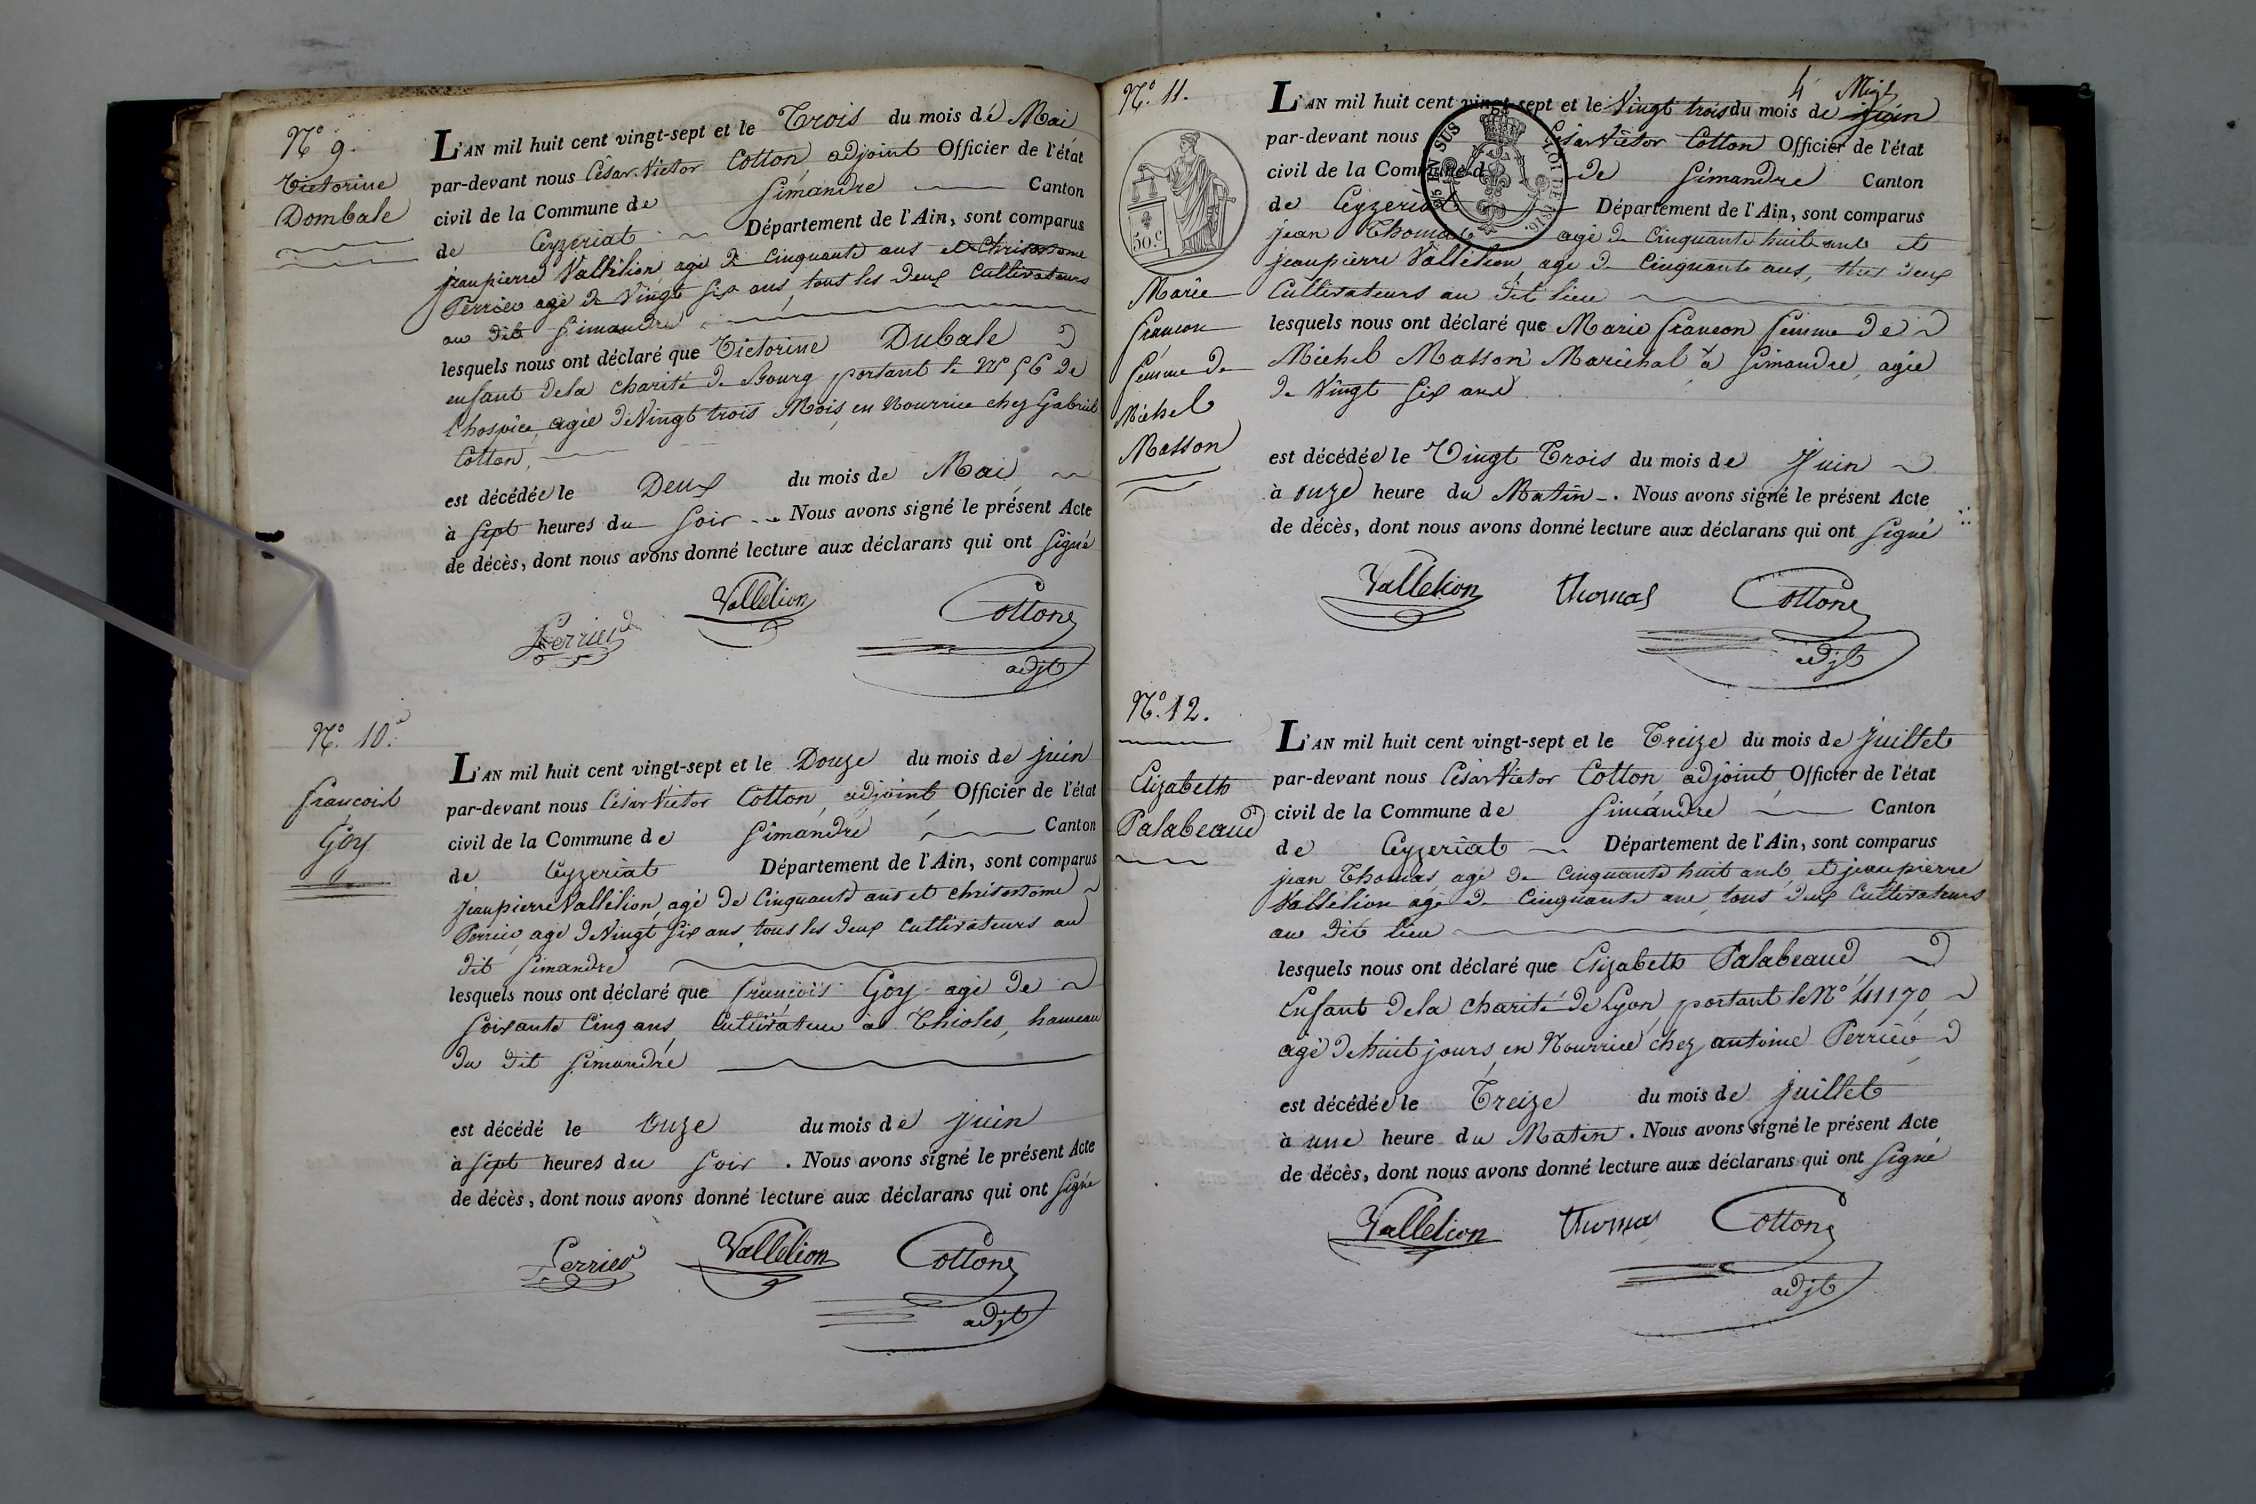 N° 9.
Victorine
Dombale
L'AN mil huit cent vingt-sept et le Trois du mois de Mai
par-devant nous César Victor Cotton adjoint Officier de l'état
civil de la Commune de Simandre Canton
de Ceyzeriat Département de l'Ain, sont comparus
jeanpierre Vallélion agé de cinquante ans et Christostome
Perrier agé de Vingt six ans, tous les deux cultivateurs
au dit Simandre
lesquels nous ont déclaré que Victorine Dubale
enfant dela charité de Bourg portant le N° 56 de
l'hospice, agée de Vingt trois Mois, en Nourrice chez Gabriel
Cotton,
est décédée le Deux du mois de Mai
à sept heures du soir. Nous avons signé le présent Acte
de décès, dont nous avons donné lecture aux déclarans qui ont signé
Perrier Vallélion Cotton
adjt
N° 10.
françois
Goy
L'AN mil huit cent vingt-sept et le Douze du mois de juin
par-devant nous César Victor Cotton, adjoint Officier de l'état
civil de la Commune de Simandre Canton
de Ceyzeriat Département de l'Ain, sont comparus
jeanpierre Vallélion, agé de Cinquante ans et christostome
Perrier agé de Vingt six ans, tous les deux cultivateurs au
dit Simandre
lesquels nous ont déclaré que françois Goy agé de
soixante cinq ans, Cultivateur à Thioles, hameau
du dit Simandre
est décédé le Onze du mois de juin
à sept heures du soir. Nous avons signé le présent Acte
de décès, dont nous avons donné lecture aux déclarans qui ont signé
Perrier Vallélion Cotton
adjt
4
N° 11.
50 c
Marie
françon
femme de
Michel
Masson
L'AN mil huit cent vingt-sept et le Vingt trois du mois de juin
par-devant nous César Victor Cotton Officier de l'état
civil de la Commune de Simandre Canton
de Ceyzeriat Département de l'Ain, sont comparus
EN SUS LOI DE 1816.
jean Thomas agé de cinquante huit ans et
jeanpierre Vallélion, agé de cinquante ans, tous deux
Cultivateurs au dit lieu
lesquels nous ont déclaré que Marie françon femme de
Michel Masson Maréchal à Simandre, agée
de Vingt six ans
est décédée le Vingt Trois du mois de Juin
à onze heure du Matin. Nous avons signé le présent Acte
de décès, dont nous avons donné lecture aux déclarans qui ont signé
Vallélion Thomas Cotton
adjt
N° 12.
Elizabeth
Palabeaud
L'AN mil huit cent vingt-sept et le Treize du mois de juillet
par-devant nous César Victor Cotton adjoint Officier de l'état
civil de la Commune de Simandre Canton
de Ceyzeriat Département de l'Ain, sont comparus
jean Thomas, agé de cinquante huit ans, et jeanpierre
Vallélion agé de cinquante ans, tous deux Cultivateurs
au dit lieu
lesquels nous ont déclaré que Elizabeth Palabeaud
Enfant dela charité de Lyon, portant le N° 41170,
agé de huit jours, en Nourrice chez antoine Perrier
est décédée le Treize du mois de juillet
à une heure du Matin. Nous avons signé le présent Acte
de décès, dont nous avons donné lecture aux déclarans qui ont signé
Vallélion Thomas Cotton
adjt